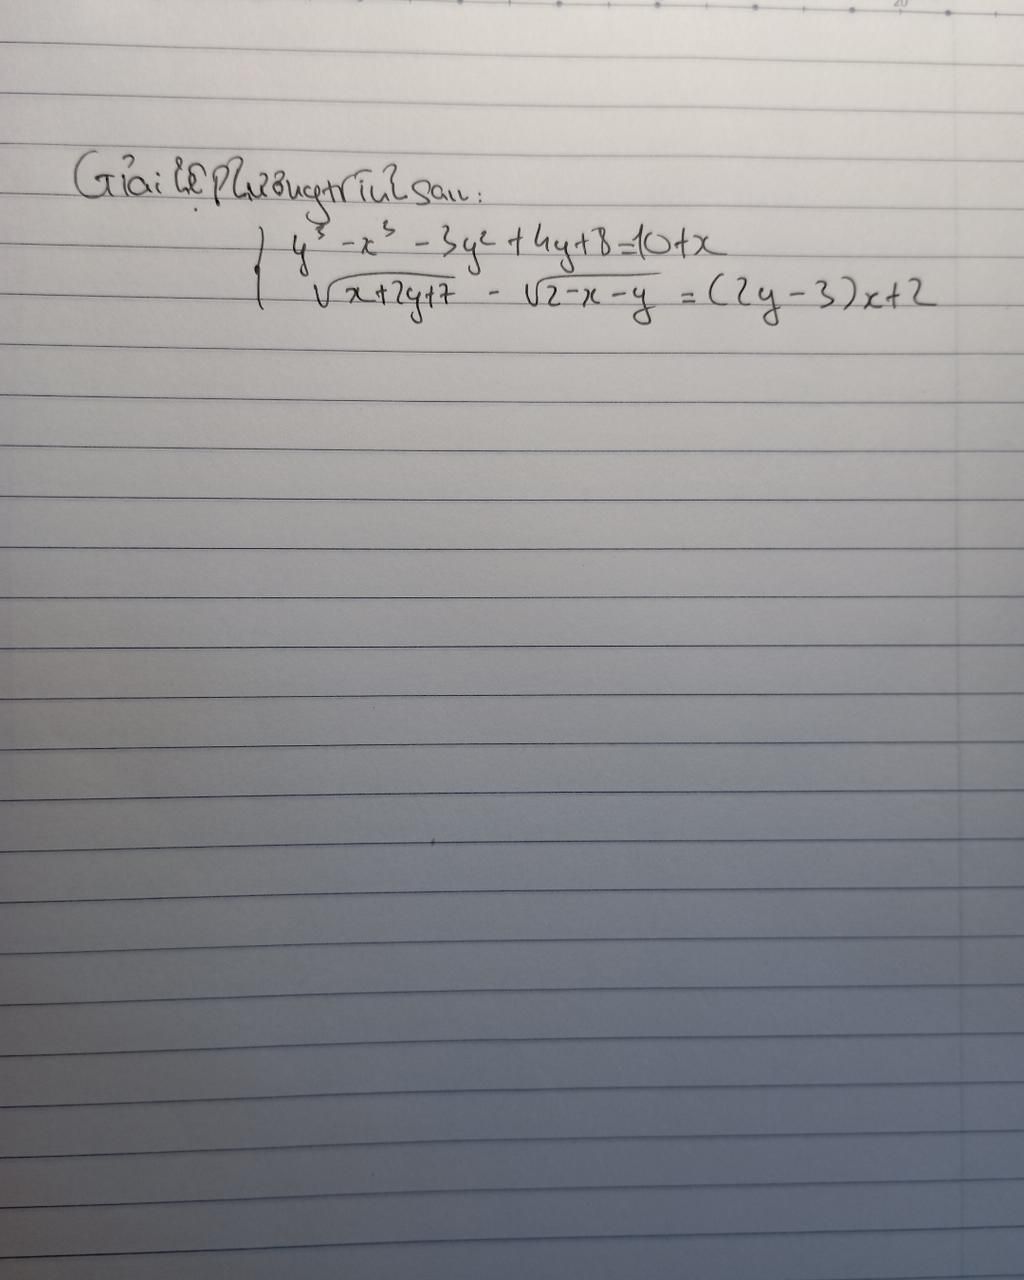 20
Giải hệ phương trình sau:
y³ - x³ - 3y² + 4y + 8 = 10 + x
√(x + 2y + 7) - √(2 - x - y) = (2y - 3)x + 2